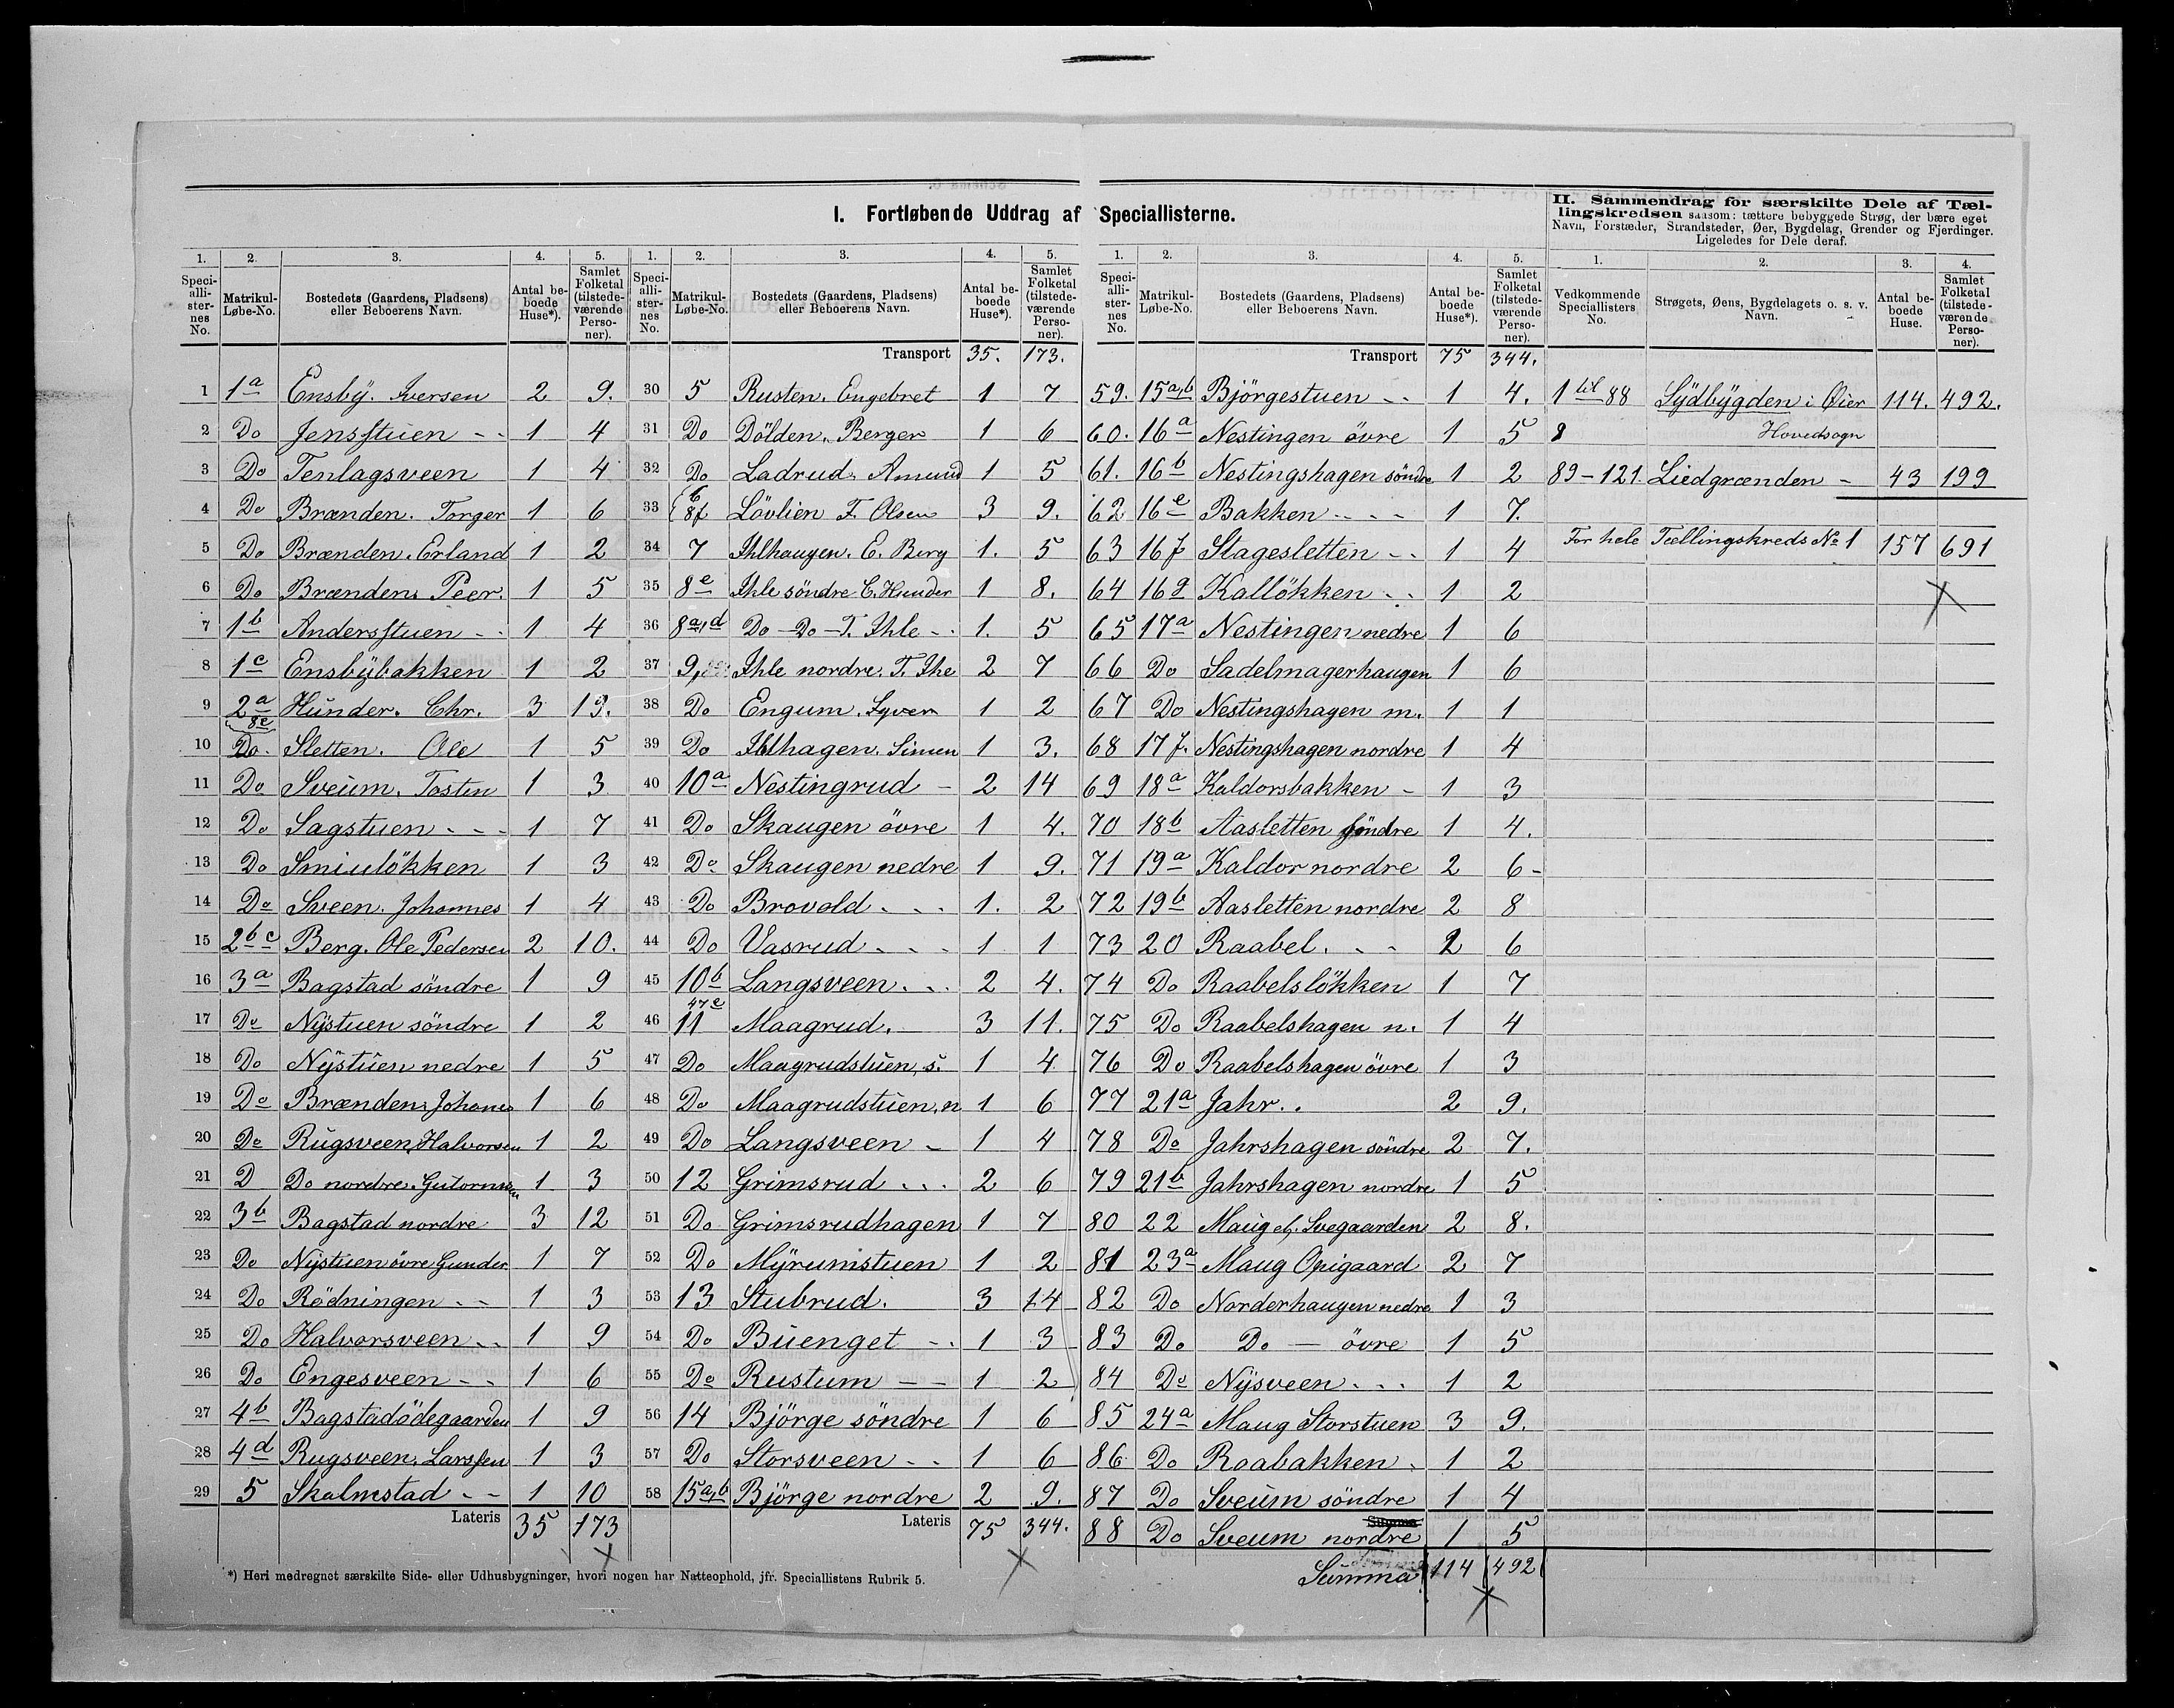 I. Fortløbende Uddrag af Speciallisterne.
1. 2. 3. 4. 5.
Speciallisternes No. Matrikul-Løbe-No. Bostedets (Gaardens, Pladsens) eller Beboerens Navn. Antal beboede Huse*). Samlet Folketal (tilstedeværende Personer).
1 1a Ensby. Iversen 2 9.
2 Do Jensstuen - - 1 4
3 Do Tenlagsveen 1 4
4 Do Brænden. Torger 1 6
5 Do Brænden. Erland 1 2
6 Do Brænden. Peer. 1 5
7 1b Andersstuen - - 1 4
8 1c Ensbybakken 1 2
9 2a 8c Hunder. Chr. 3 19.
10 Do. Sletten. Ole 1 5
11 Do Sveum. Tosten 1 3
12 Do Sagstuen - - - 1 7
13 Do Smiulökken 1 3
14 Do Sveen. Johannes 1 4
15 2b c Berg. Ole Pedersen 2 10.
16 3a Bagstad söndre 1 9
17 Do Nystuen söndre 1 2
18 Do Nystuen nedre 1 5
19 Do Brænden. Johanes 1 6
20 Do Rugsveen. Halvorsen 1 2
21 D Do nordre. Gutormsen 1 3
22 3b Bagstad nordre 3 12
23 Do Nystuen övre Gunder 1 7
24 Do Rödningen - - 1 3
25 Do Halvorsveen - - 1 9
26 Do Engesveen - - 1 6
27 4b Bagstadödegaarden 1 9
28 4d Rugsveen. Larssen 1 3
29 5 Skalmstad - - 1 10
Lateris 35 173
*) Heri medregnet særskilte Side- eller Udhusbygninger, hvori nogen har Natteophold, jfr. Speciallistens Rubrik 5.
1. 2. 3. 4. 5.
Speciallisternes No. Matrikul-Løbe-No. Bostedets (Gaardens, Pladsens) eller Beboerens Navn. Antal beboede Huse*). Samlet Folketal (tilstedeværende Personer).
Transport 35. 173.
30 5 Rusten. Engebret 1 7
31 Do Dölden. Berger 1 6
32 Do Ladrud. Amund 1 5
33 6 8f Lövlien T. Olsen 3 9.
34 7 Ihlhaugen. E. Berg 1. 5
35 8e Ihle söndre C. Hunder 1 8.
36 8a,d Do - Do - T. Ihle - - 1. 5
37 9, Ihle nordre. T. Ihe 2 7
38 Do Engum. Syver 1 2
39 Do Ihlhagen. Simen 1 3.
40 10a Nestingrud - 2 14
41 Do Skaugen övre 1 4.
42 Do Skaugen nedre 1 9.
43 Do Brovold - - - 1. 2
44 Do Vasrud - - - 1 1
45 10b Langsveen. - - 2 4.
46 47e 11 Maagrud. - 3 11.
47 Do Maagrudstuen, s. 1 4
48 Do Maagrudstuen, n 1 6
49 Do Langsveen - 1 4
50 12 Grimsrud - - - 2 6
51 Do Grimsrudhagen 1 7
52 Do Myrumstuen 1 2
53 13 Stubrud. 3 14
54 Do Buenget - - 1 3
55 Do Rustum - - 1 2
56 14 Björge söndre 1 6
57 Do Storsveen - - 1 6
58 15a,b Björge nordre 2 9.
Lateris 75 344.
1. 2. 3. 4. 5.
Speciallisternes No. Matrikul-Løbe-No. Bostedets (Gaardens, Pladsens) eller Beboerens Navn. Antal beboede Huse*). Samlet Folketal (tilstedeværende Personer).
Transport 75 344.
59. 15a,b Björgestuen - - 1 4.
60. 16a Nestingen övre 1 5
61. 16b Nestingshagen söndre 1 2
62 16e Bakken - - - 1 7.
63 16f Stagesletten - - 1 4
64 16g Kallökken - - 1 2
65 17a Nestingen nedre 1 6
66 Do Sadelmagerhaugen 1 6
67 Do Nestingshagen m. 1 1
68 17f. Nestingshagen nordre 1 4
69 18a Kaldorsbakken - 1 3
70 18b Aasletten söndre 1 4.
71 19a Kaldor nordre 2 6 -
72 19b Aasletten nordre 2 8
73 20 Raabel. - - 2 6
74 Do Raabelslökken 1 7
75 Do Raabelshagen n. 1 4
76 Do Raabelshagen övre 1 3
77 21a Jahr. . 2 9.
78 Do Jahrshagen söndre 2 7.
79 21b Jahrshagen nordre 1 5
80 22 Maug el. Svegaarden 2 8.
81 23a Maug Opigaard 2 7
82 Do Norderhaugen nedre 1 3
83 Do Do - övre 1 5
84 Do Nysveen - - - 1 2
85 24a Maug Storstuen 3 9.
86 Do Raabakken - 1 2
87 Do Sveum söndre 1 4
Summa
88 Do Sveum nordre 1 5
Summa 114 492
II. Sammendrag for særskilte Dele af Tællingskredsen saasom: tættere bebyggede Strøg, der bære eget Navn, Forstæder, Strandsteder, Øer, Bygdelag, Grender og Fjerdinger. Ligeledes for Dele deraf.
1. 2. 3. 4.
Vedkommende Speciallisters No. Strøgets, Øens, Bygdelagets o. s. v. Navn. Antal beboede Huse. Samlet Folketal (tilstedeværende Personer).
1 til 88 Sydbygden i Øier 114. 492.
Hovedsogn
89 - 121. Liedgrænden - 43 199
For hele Tællingskreds No 1 157 691